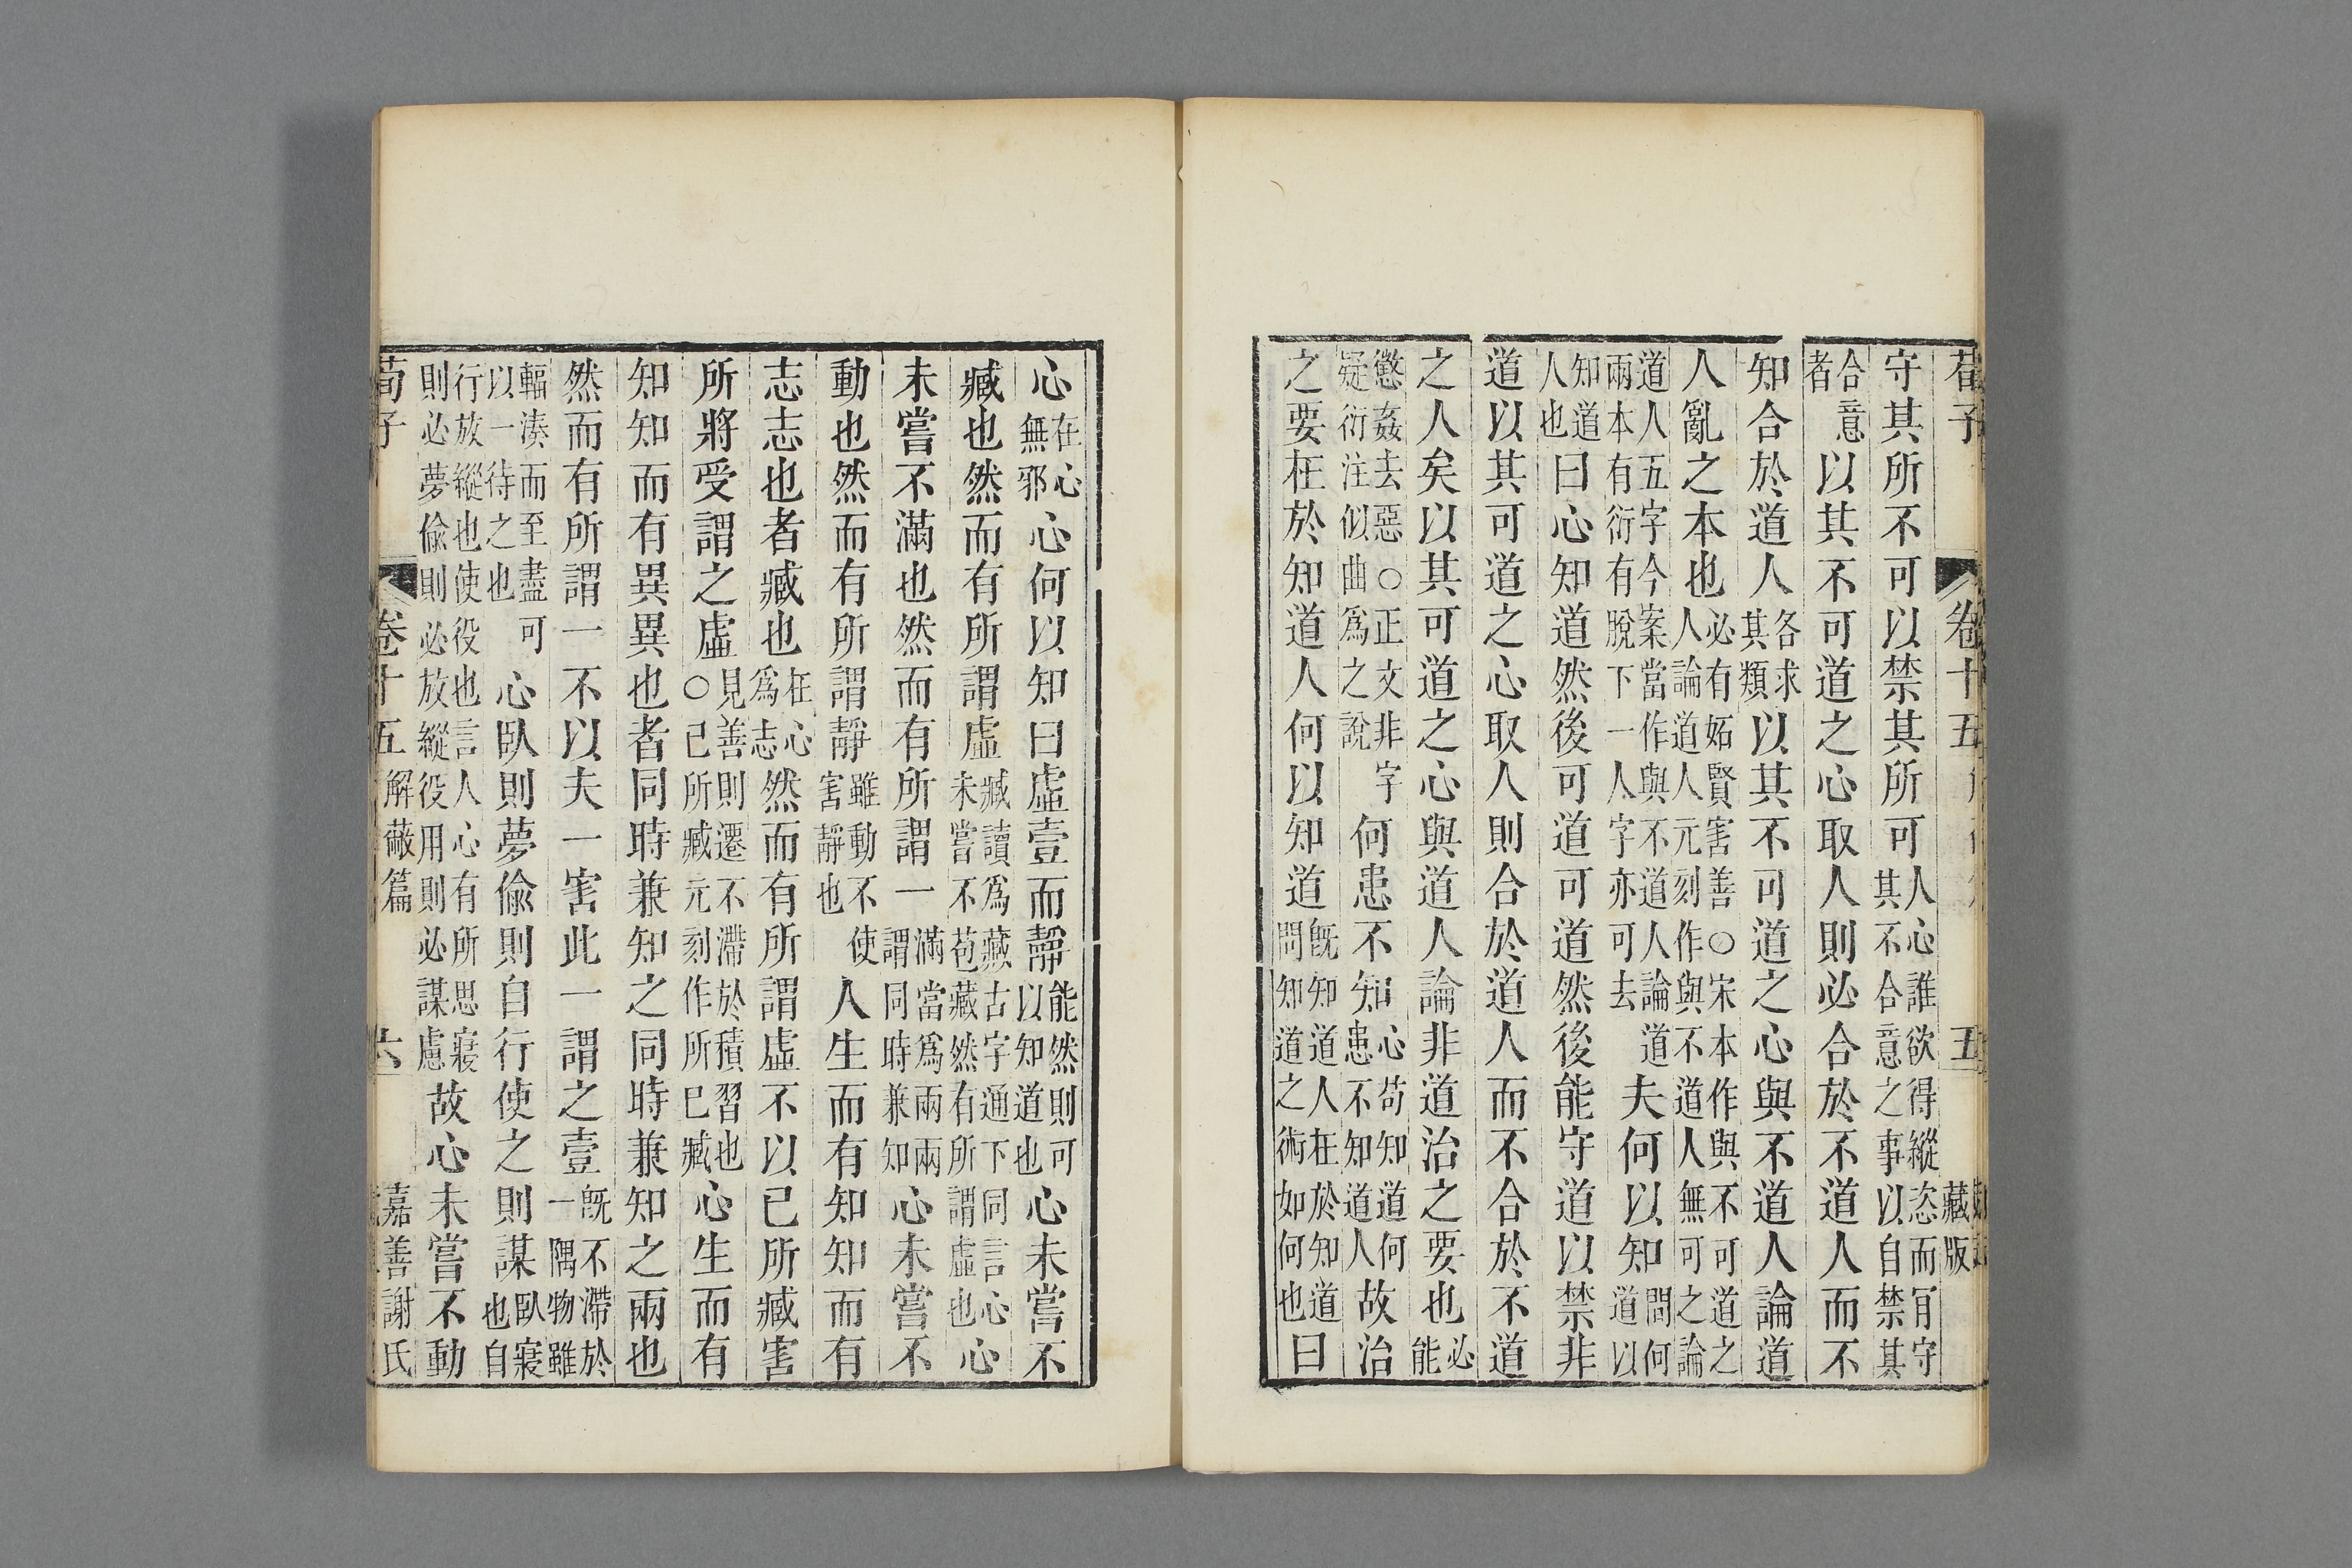 荀子 卷十五 五 藏版
守其所不可以禁其所可人心誰欲得縱恣而肎守其不合意之事以自禁其
合意者以其不可道之心取人則必合於不道人而不
知合於道人各求其類以其不可道之心與不道人論道
人亂之本也必有妬賢害善○宋本作與不可道之人論道人元刻作與不道人無可之論
道人五字今案當作與不道人論道兩本有衍有脫下一人字亦可去夫何以知問何道以
知道人也曰心知道然後可道可道然後能守道以禁非
道以其可道之心取人則合於道人而不合於不道
之人矣以其可道之心與道人論非道治之要也必能
懲姦去惡○正文非字疑衍注似曲爲之說何患不知心苟知道何患不知道人故治
之要在於知道人何以知道旣知道人在於知道問知道之術如何也曰
心在心無邪心何以知曰虛壹而靜能然則可以知道也心未嘗不
臧也然而有所謂虛臧讀爲藏古字通下同言心未嘗不苞藏然有所謂虛也心
未嘗不滿也然而有所謂一滿當爲兩兩謂同時兼知心未嘗不
動也然而有所謂靜雖動不使害靜也人生而有知知而有
志志也者臧也在心爲志然而有所謂虛不以已所臧害
所將受謂之虛見善則遷不滯於積習也○已所臧元刻作所已臧心生而有
知知而有異異也者同時兼知之同時兼知之兩也
然而有所謂一不以夫一害此一謂之壹旣不滯於一隅物雖
輻湊而至盡可以一待之也心臥則夢偷則自行使之則謀臥寢也自
行放縱也使役也言人心有所思寢則必夢偷則必放縱役用則必謀慮故心未嘗不動
荀子 卷十五 解蔽篇 六 嘉善謝氏